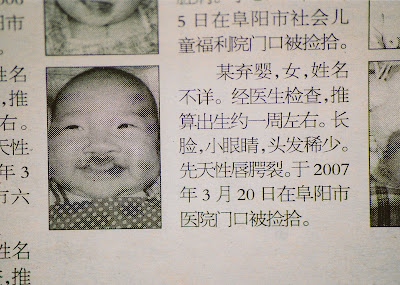 阳市
。
姓名
，推
右。
天性
年 3
市六
姓名
，推
5 日在阜阳市社会儿
童福利院门口被捡拾。
某弃婴，女，姓名
不详。经医生检查，推
算出生约一周左右。长
脸，小眼睛，头发稀少。
先天性唇腭裂。于 2007
年 3 月 20 日在阜阳市
医院门口被捡拾。